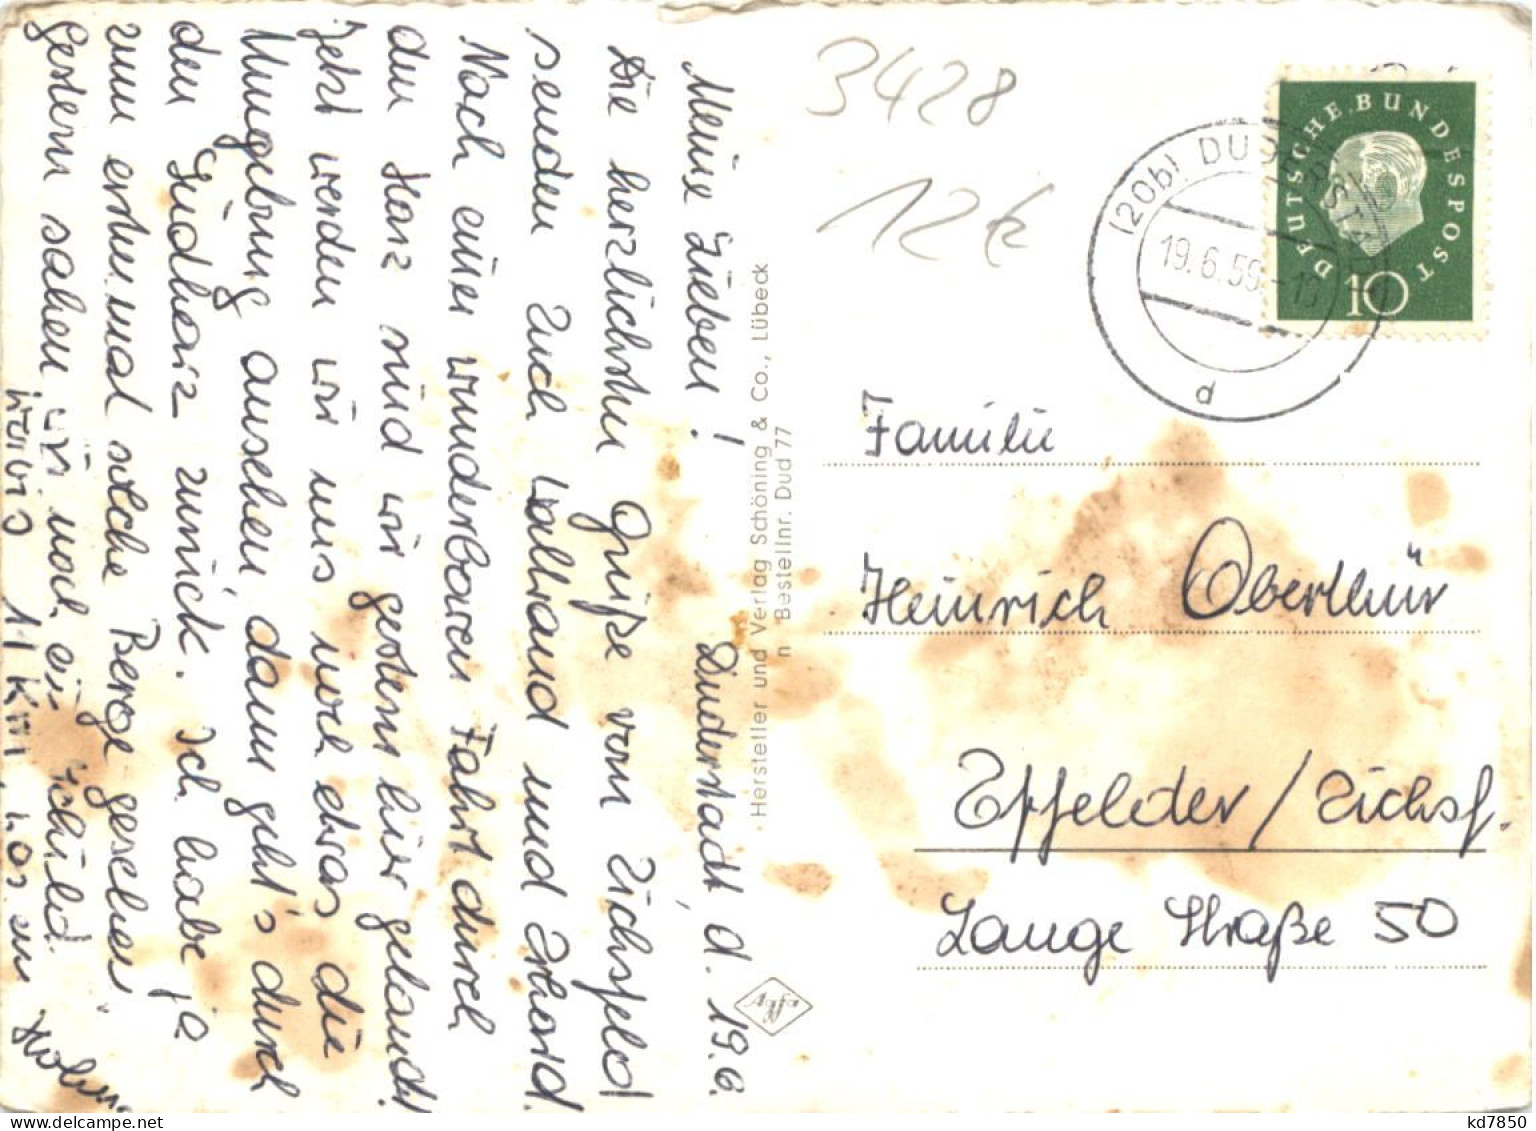 Meine Lieben! Duderstadt, d. 19.6.
Die herzlichsten Grüße vom Eichsfeld
senden Euch Waltraud und Erhard.
Nach einer wunderbaren Fahrt durch
den Harz sind wir gestern hier gelandet!
Jetzt werden wir uns noch etwas die
Umgebung ansehen, dann geht's durch
den Südharz zurück. Ich habe ja
zum ersten mal solche Berge gesehen
gestern sahen wir noch ein Schild
Worbis 11 Km
Hersteller und Verlag Schöning & Co., Lübeck
Bestellnr. Dud 77
Agfa
3428
12€
DEUTSCHE BUNDESPOST
10
(20b) DUDERSTADT
19.6.59.-10
d
Familie
Heinrich Oberthür
Effelder/Eichsf.
Lange Straße 50
kd7850